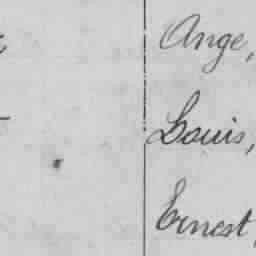 Ange,
Louis,
Ernest,